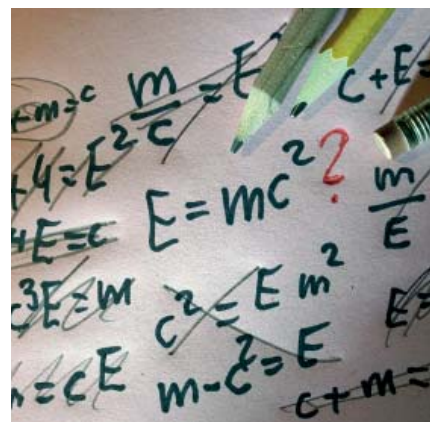 +m=c
m/c = E
c+E=
+4=E²
E=mc²?
m/E
4E=c
c³E=m
c²=Em²
E=
=cE
m-c²=E
c+m=